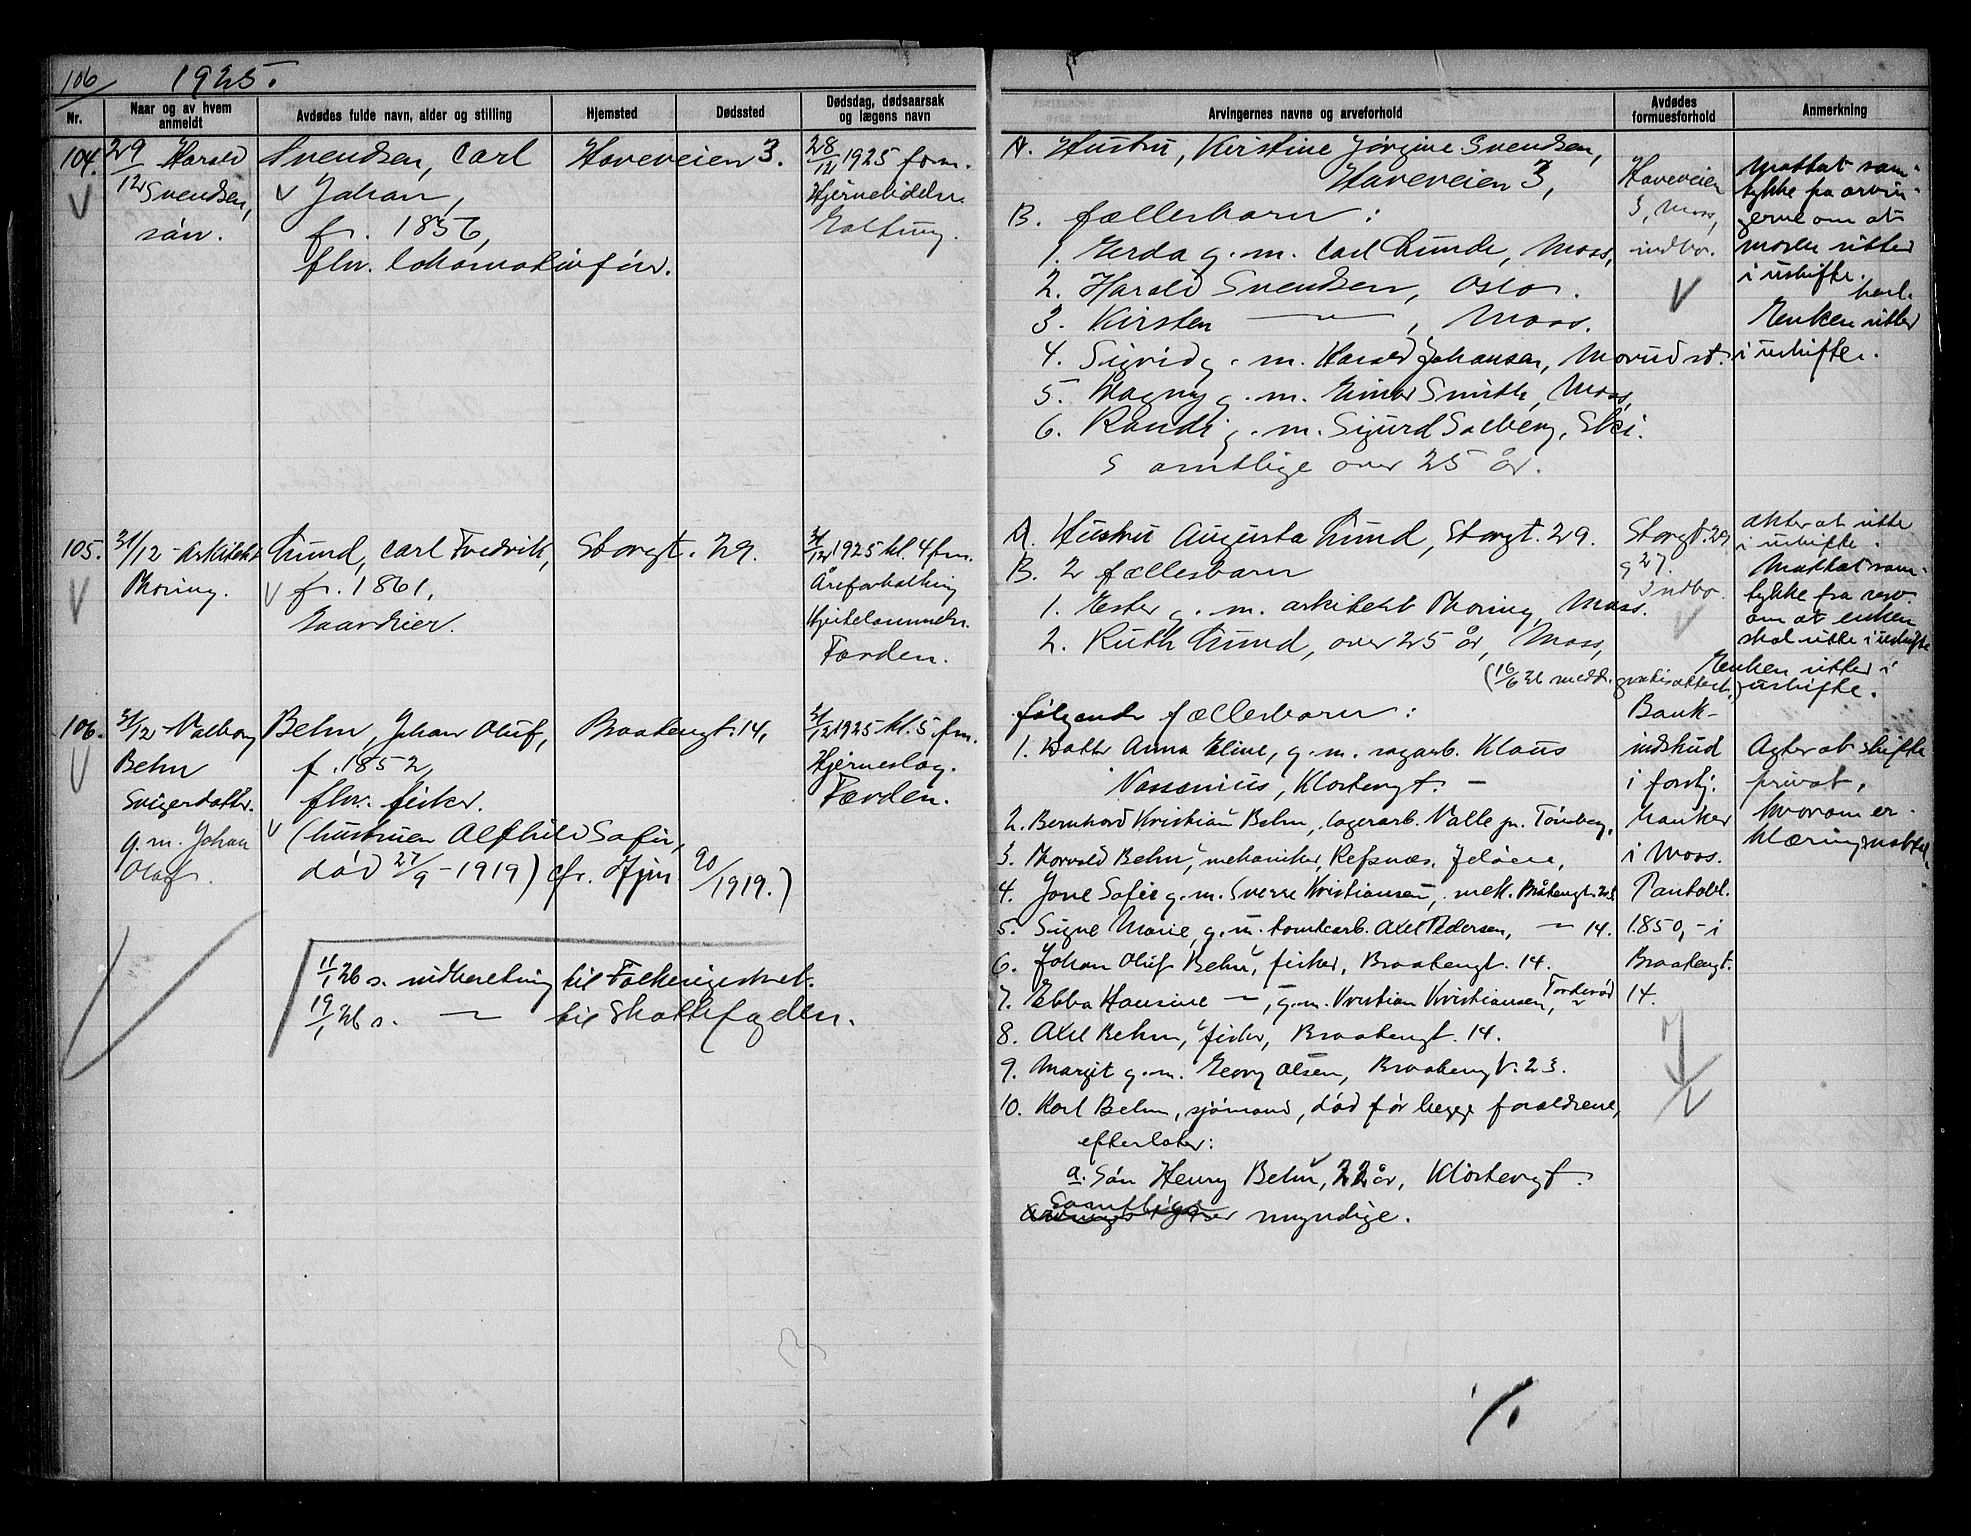 106 1925.
Nr.
Naar og av hvem anmeldt
Avdødes fulde navn, alder og stilling
Hjemsted
Dødssted
Dødsdag, dødsaarsak og lægens navn
Arvingernes navne og arveforhold
Avdødes formuesforhold
Anmerkning
104.
29/12 Harald
Svendsen,
søn.
Svendsen, Carl
Johan,
f. 1856,
fhv. lokomotivfør.
Haveveien 3.
28/12 1925 form.
Hjernelidelse
A. Hustru, Kirstine Jørgine Svendsen,
Haveveien 3,
B. fællesbarn:
1. Gerda g. m. Carl Lunde, Moss,
2. Harald Svendsen, Oslo.
3. Kirsten — " — , Moss.
4. Sigrid g. m. Harald Johansen, st.
5. Magny g. m. Einar Smith, Moss,
6. Randi g. m. Sigurd Solberg, Ski.
Samtlige over 25 år.
Haveveien
3, Moss,
indbo.
Mottat sam-
tykke fra arvin-
gerne om at
moren sitter
i uskifte.
Enken sitter
i uskifte.
105.
31/12 - Arkitekt
Thoring.
Lund, Carl Fredrik,
f. 1861,
Gaardeier.
Storgt. 29.
31/12 1925 kl. 4 fm.
Åreforkalkning
Førden.
A. Hustru Augusta Lund, Storgt. 29.
B. 2 fællesbarn
1. Ester g. m. arkitekt Thoring, Moss.
2. Ruth Lund, over 25 år, Moss,
(16/6 26 medd. gratisattest)
Storgt. 29
g 27.
Indbo.
akter at sitte
i uskifte.
Mottat sam-
tykke fra
om at enken
skal sitte i uskifte
Enken sitter i
uskifte.
106.
31/12 - Valborg
Behn
Svigerdatter.
g. m. Johan
Olaf.
Behn, Johan Oluf,
f. 1852,
fhv. fisker.
(hustruen Alfhild Sofie,
død 27/9 - 1919) cfr. Hjm. 90/1919.)
Braatengt. 14,
31/12 1925 kl. 5 fm.
Hjerneslag.
Førden.
følgende fællesbarn:
1. Datter Anna Eline, g. m. sagarb. Klaus
Vassenius, Klostergt. -
2. Bernhard Kristian Behn, lagerarb. Valle pr. Tønsberg,
3. Thorvald Behn, mekaniker, Refsnæs, Jeløen,
4. Sofie g. m. Sverre Kristiansen, mek. Bråtengt. 23.
5. Signe Marie, g. m. tomtearb. Axel Pedersen, — " — 14.
6. Johan Oluf Behn, fisker, Braatengt. 14.
7. Ebba Hansine — " —, g. m. Kristian Kristiansen,
8. Axel Behn, fisker, Braatengt. 14.
9. Margit g. m. Georg Olsen, Braatengt. 23.
10. Karl Behn, sjømand, død før begge forældrene,
efterlater:
a. Søn Henry Behn, 22 år, Klostergt.
Samtlige er myndige.
Bank-
indskud
i forskj.
banker
i Moss.
Pantobl.
1.850,- i
Braatengt.
14.
Agter at skifte
privat,
hvorom er-
klæring
11/1 26 s. indberetning til Folkeregistret.
19/1 26 s. — " — til Skattefogden.